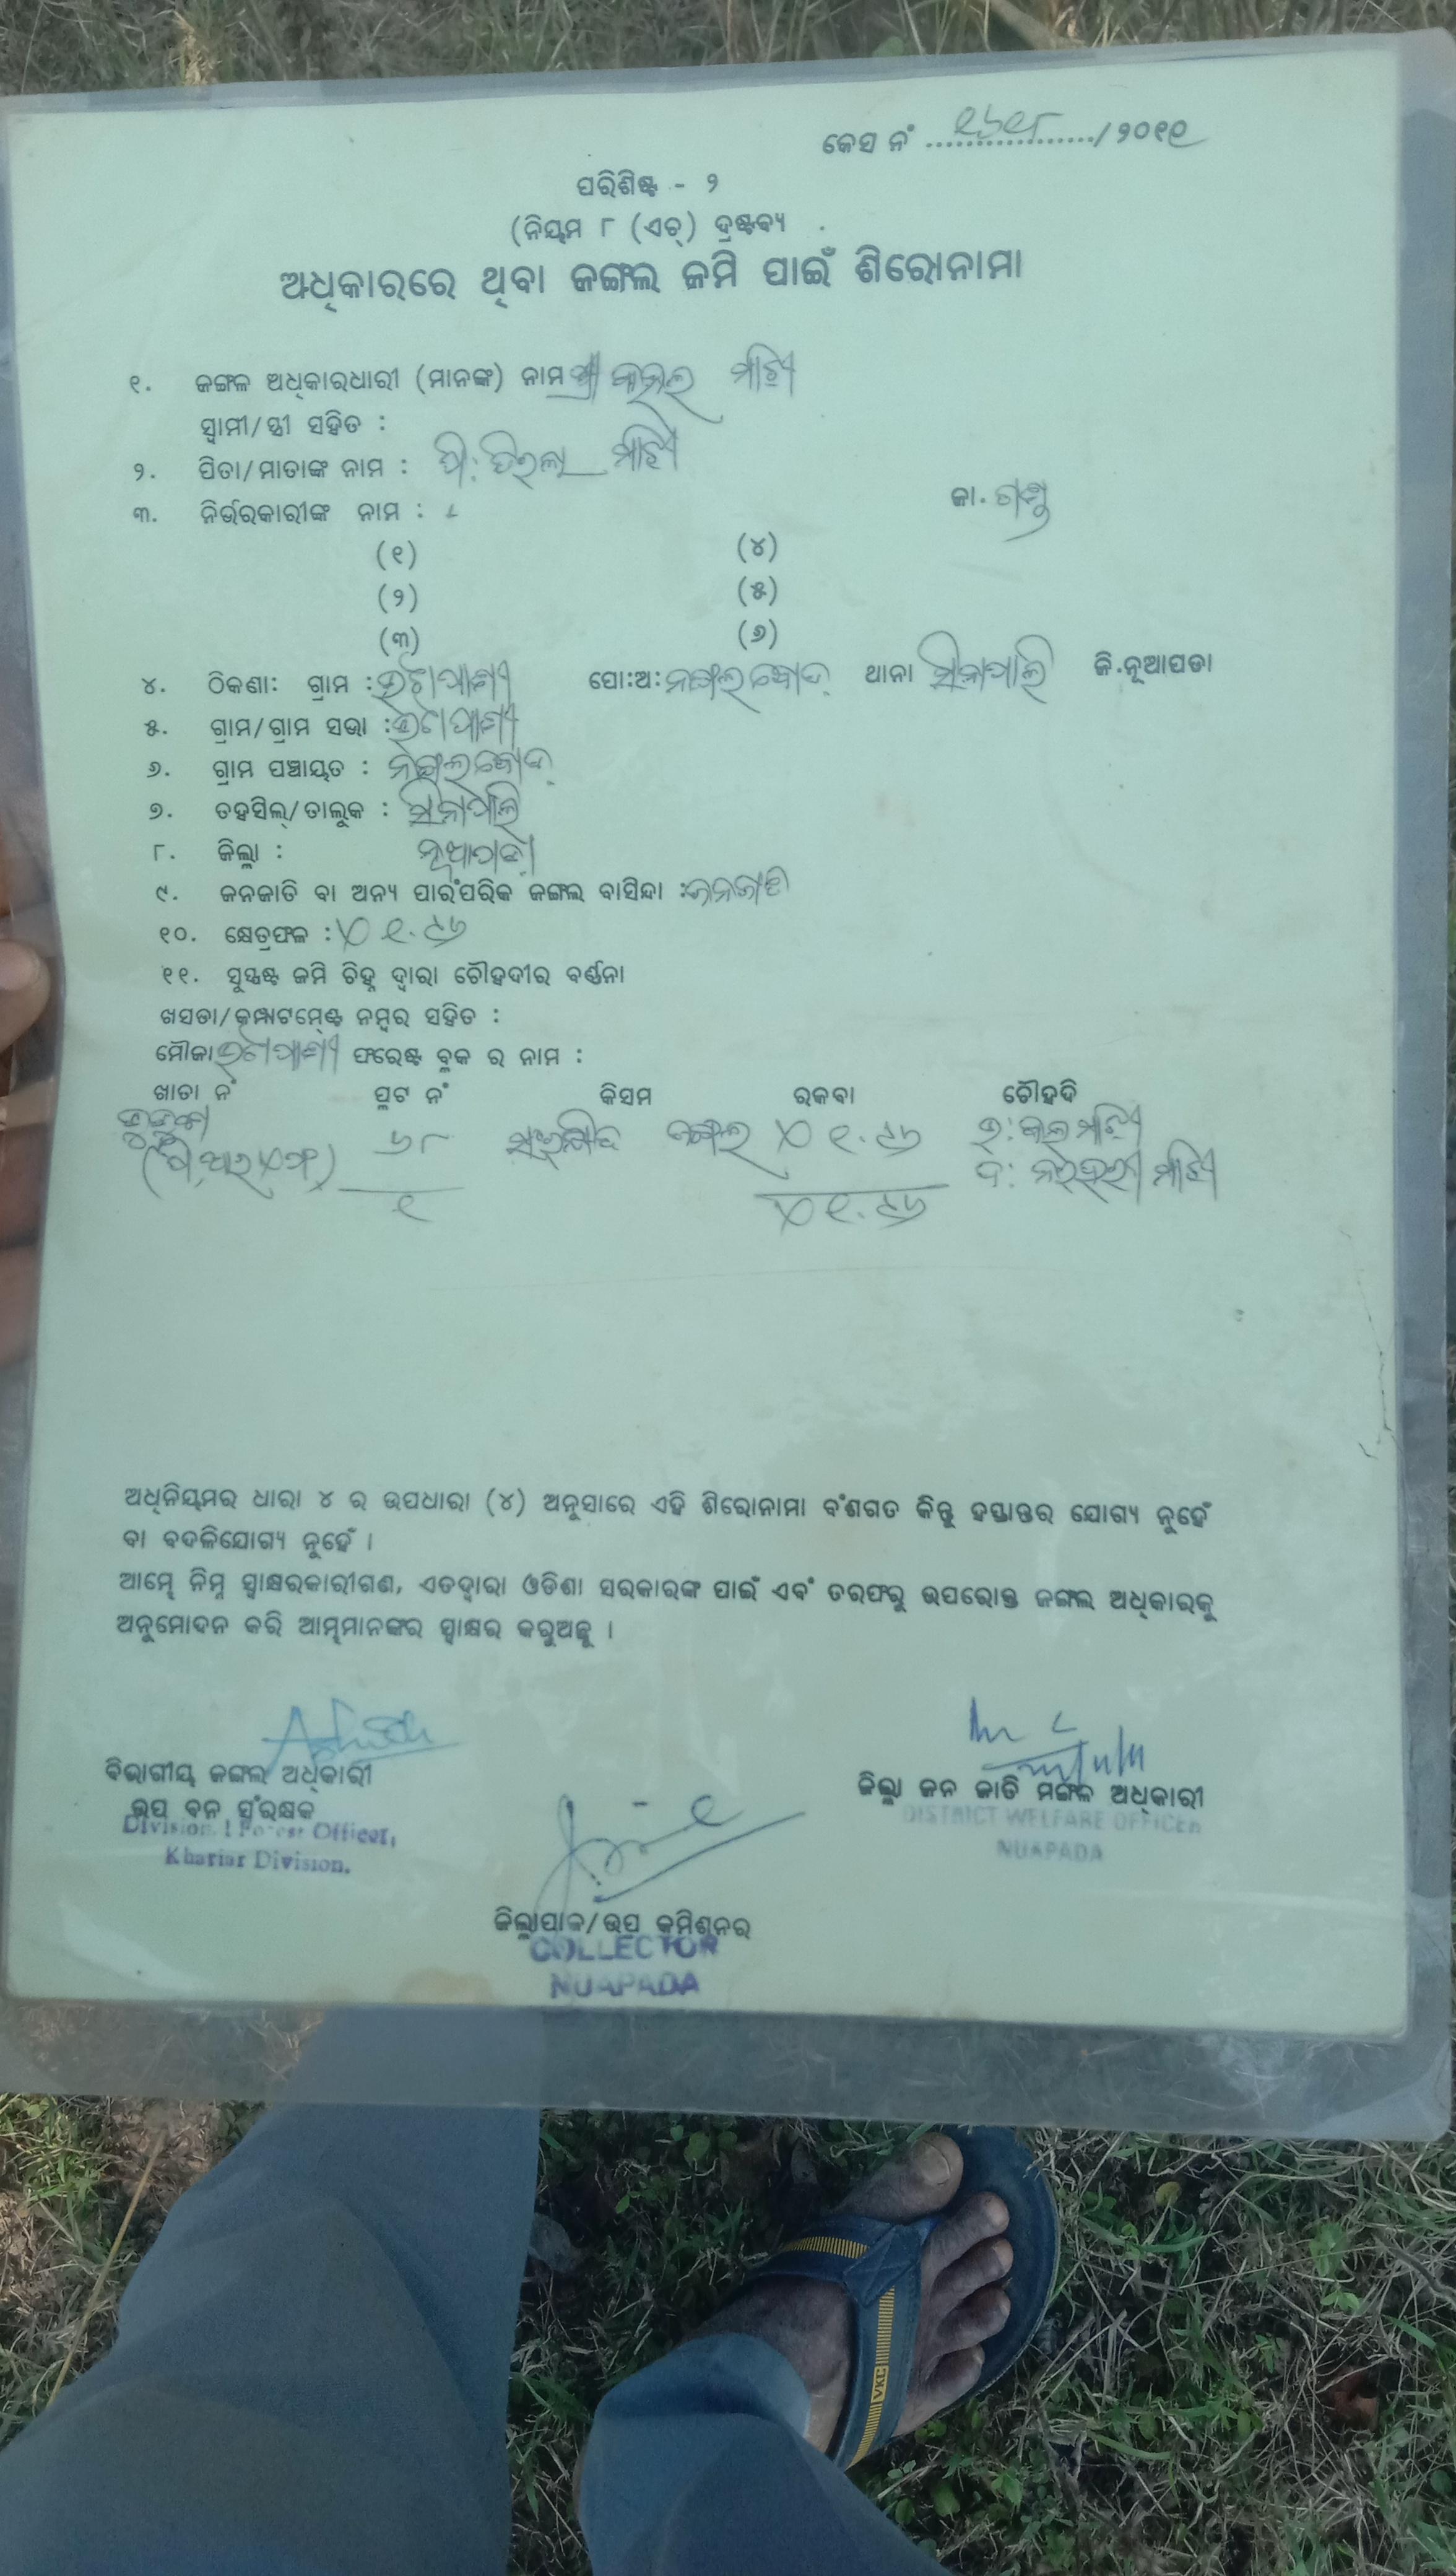 କେସ ନଂ ୧୬୧୮/୨୦୧୧
ପରିଶିଷ୍ଟ - ୨
(ନିୟମ ୮ (ଏଚ୍) ଦ୍ରଷ୍ଟବ୍ୟ
ଅଧିକାରରେ ଥିବା ଜଙ୍ଗଲ ଜମି ପାଇଁ ଶିରୋନାମା
୧. ଜଙ୍ଗଳ ଅଧିକାରଧାରୀ (ମାନଙ୍କ) ନାମ ଶ୍ରୀ ମାଝି
ସ୍ୱାମୀ/ସ୍ତ୍ରୀ ସହିତ :
୨. ପିତା/ମାତାଙ୍କ ନାମ : ପି: ମାଝି
୩. ନିର୍ଭରକାରୀଙ୍କ ନାମ : ଜା. ଗଣ୍ଡ
(୧) (୪)
(୨) (୫)
(୩) (୬)
୪. ଠିକଣା: ଗ୍ରାମ : ପୋ:ଅ: ନଙ୍ଗଲବୋଡ଼ ଥାନା ସିନାପାଲି ଜି.ନୂଆପଡା
୫. ଗ୍ରାମ/ଗ୍ରାମ ସଭା :
୬. ଗ୍ରାମ ପଞ୍ଚାୟତ : ନଙ୍ଗଲବୋଡ଼
୭. ତହସିଲ୍/ତାଲୁକ : ସିନାପାଲି
୮. ଜିଲ୍ଲା : ନୂଆପଡ଼ା
୯. ଜନଜାତି ବା ଅନ୍ୟ ପାରଂପରିକ ଜଙ୍ଗଲ ବାସିନ୍ଦା : ଜନଜାତି
୧୦. କ୍ଷେତ୍ରଫଳ : ୧.୯୬
୧୧. ସୁସ୍ପଷ୍ଟ ଜମି ଚିହ୍ନ ଦ୍ୱାରା ଚୌହଦୀର ବର୍ଣ୍ଣନା
ଖସଡା/କମ୍ପାଟମେଣ୍ଟ ନମ୍ବର ସହିତ :
ମୌଜା ଫରେଷ୍ଟ ବ୍ଲକ ର ନାମ :
ଖାତା ନଂ ପ୍ଲଟ ନଂ କିସମ ରକବା ଚୌହଦି
୬୮ ସଂରକ୍ଷିତ ଜଙ୍ଗଲ ୧.୯୬ ଉ: ମାଝି
ଦ: ନରହରୀ ମାଝି
୧ ୧.୯୬
ଅଧିନିୟମର ଧାରା ୪ ର ଉପଧାରା (୪) ଅନୁସାରେ ଏହି ଶିରୋନାମା ବଂଶଗତ କିନ୍ତୁ ହସ୍ତାନ୍ତର ଯୋଗ୍ୟ ନୁହେଁ
ବା ବଦଳିଯୋଗ୍ୟ ନୁହେଁ ।
ଆମ୍ଭେ ନିମ୍ନ ସ୍ୱାକ୍ଷରକାରୀଗଣ, ଏତଦ୍ୱାରା ଓଡିଶା ସରକାରଙ୍କ ପାଇଁ ଏବଂ ତରଫରୁ ଉପରୋକ୍ତ ଜଙ୍ଗଲ ଅଧିକାରକୁ
ଅନୁମୋଦନ କରି ଆମ୍ଭମାନଙ୍କର ସ୍ୱାକ୍ଷର କରୁଅଛୁ ।
ବିଭାଗୀୟ ଜଙ୍ଗଲ ଅଧିକାରୀ
ଉପ ବନ ସଂରକ୍ଷକ
Divisional Forest Officer,
Khariar Division.
ଜିଲ୍ଲା ଜନ ଜାତି ମଙ୍ଗଳ ଅଧିକାରୀ
DISTRICT WELFARE OFFICER
NUAPADA
ଜିଲ୍ଲାପାଳ/ଉପ କମିଶ୍ନର
COLLECTOR
NUAPADA
VKC